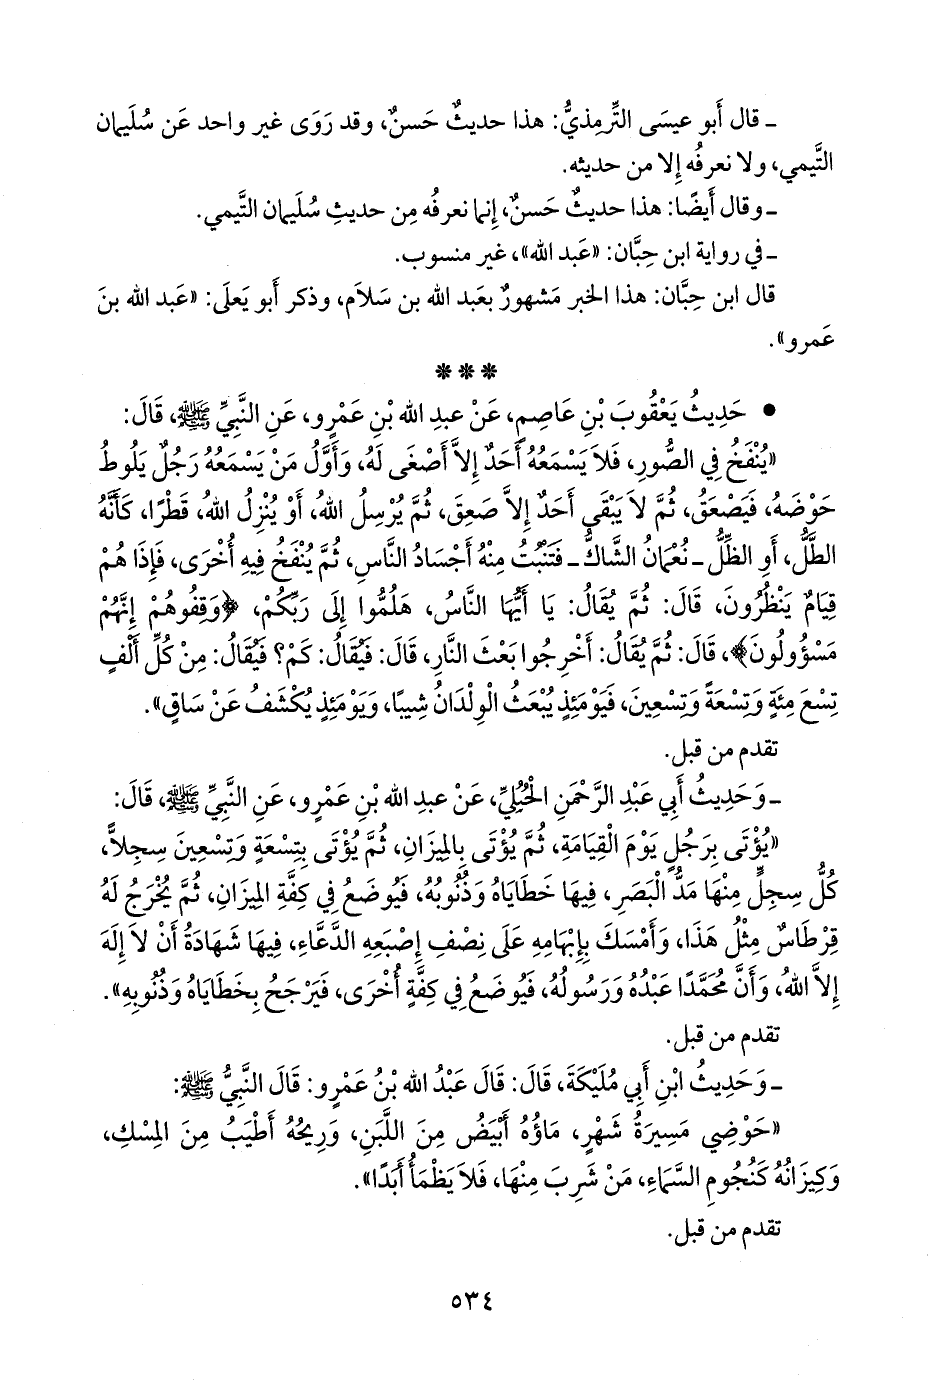 ـ قال أَبو عيسَى التِّرمِذيُّ: هذا حديثٌ حَسنٌ، وقد رَوَى غير واحد عَن سُلَيمان
التَّيمي، ولا نعرفُه إِلا من حديثه.
ـ وقال أَيضًا: هذا حديثٌ حَسنٌ، إِنما نعرفُه مِن حديثِ سُلَيمان التَّيمي.
ـ في رواية ابن حِبَّان: «عَبد الله»، غير منسوب.
قال ابن حِبَّان: هذا الخبر مَشهورٌ بعَبد الله بن سَلَام، وذكر أَبو يَعلَى: «عَبد الله بنَ
عَمرو».
***
• حَدِيثُ يَعْقُوبَ بْنِ عَاصِمٍ، عَنْ عبدِ الله بْنِ عَمْرٍو، عَنِ النَّبِيِّ ﷺ، قَالَ:
«يُنْفَخُ فِي الصُّورِ، فَلَا يَسْمَعُهُ أَحَدٌ إِلَّا أَصْغَى لَهُ، وَأَوَّلُ مَنْ يَسْمَعُهُ رَجُلٌ يَلُوطُ
حَوْضَهُ، فَيَصْعَقُ، ثُمَّ لَا يَبْقَى أَحَدٌ إِلَّا صَعِقَ، ثُمَّ يُرْسِلُ اللهُ، أَوْ يُنْزِلُ اللهُ، قَطْرًا، كَأَنَّهُ
الطَّلُّ، أَوِ الظِّلُّ ـ نُعْمَانُ الشَّاكُّ ـ فَتَنْبُتُ مِنْهُ أَجْسَادُ النَّاسِ، ثُمَّ يُنْفَخُ فِيهِ أُخْرَى، فَإِذَا هُمْ
قِيَامٌ يَنْظُرُونَ، قَالَ: ثُمَّ يُقَالُ: يَا أَيُّهَا النَّاسُ، هَلُمُّوا إِلَى رَبِّكُمْ، ﴿وَقِفُوهُمْ إِنَّهُمْ
مَسْؤُولُونَ﴾، قَالَ: ثُمَّ يُقَالُ: أَخْرِجُوا بَعْثَ النَّارِ، قَالَ: فَيُقَالُ: كَمْ؟ فَيُقَالُ: مِنْ كُلِّ أَلْفٍ
تِسْعَ مِئَةٍ وَتِسْعَةً وَتِسْعِينَ، فَيَوْمَئِذٍ يُبْعَثُ الْوِلْدَانُ شِيبًا، وَيَوْمَئِذٍ يُكْشَفُ عَنْ سَاقٍ».
تقدم من قبل.
ـ وَحَدِيثُ أَبِي عَبْدِ الرَّحْمَنِ الْحُبُلِيِّ، عَنْ عبدِ الله بْنِ عَمْرٍو، عَنِ النَّبِيِّ ﷺ، قَالَ:
«يُؤْتَى بِرَجُلٍ يَوْمَ الْقِيَامَةِ، ثُمَّ يُؤْتَى بِالْمِيزَانِ، ثُمَّ يُؤْتَى بِتِسْعَةٍ وَتِسْعِينَ سِجِلًّا،
كُلُّ سِجِلٍّ مِنْهَا مَدُّ الْبَصَرِ، فِيهَا خَطَايَاهُ وَذُنُوبُهُ، فَيُوضَعُ فِي كِفَّةِ الْمِيزَانِ، ثُمَّ يُخْرَجُ لَهُ
قِرْطَاسٌ مِثْلُ هَذَا، وَأَمْسَكَ بِإِبْهَامِهِ عَلَى نِصْفِ إِصْبَعِهِ الدَّعَّاءِ، فِيهَا شَهَادَةُ أَنْ لَا إِلَهَ
إِلَّا اللهُ، وَأَنَّ مُحَمَّدًا عَبْدُهُ وَرَسُولُهُ، فَيُوضَعُ فِي كِفَّةٍ أُخْرَى، فَيَرْجَحُ بِخَطَايَاهُ وَذُنُوبِهِ».
تقدم من قبل.
ـ وَحَدِيثُ ابْنِ أَبِي مُلَيْكَةَ، قَالَ: قَالَ عَبْدُ الله بْنُ عَمْرٍو: قَالَ النَّبِيُّ ﷺ:
«حَوْضِي مَسِيرَةُ شَهْرٍ، مَاؤُهُ أَبْيَضُ مِنَ اللَّبَنِ، وَرِيحُهُ أَطْيَبُ مِنَ الْمِسْكِ،
وَكِيزَانُهُ كَنُجُومِ السَّمَاءِ، مَنْ شَرِبَ مِنْهَا، فَلَا يَظْمَأُ أَبَدًا».
تقدم من قبل.
٥٣٤